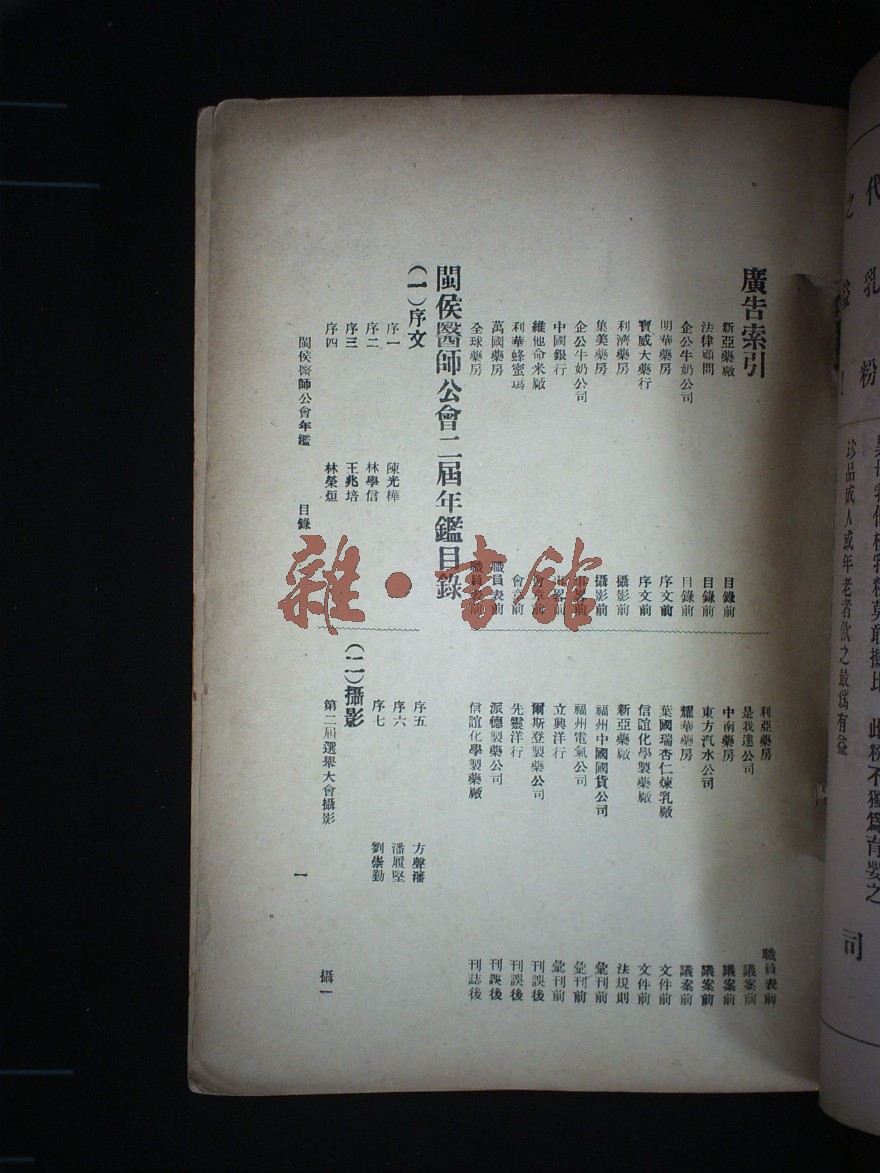 廣告索引
新亞藥廠 目錄前
法律顧問 目錄前
企公牛奶公司 目錄前
明華藥房 序文前
寶威大藥行 序文前
利濟藥房 攝影前
集美藥房 攝影前
企公牛奶公司
中國銀行
維他命米廠
利華蜂蜜瑪 會章前
萬國藥房 職員表前
全球藥房 職員表前
利亞藥房 職員表前
是我達公司 議案前
中南藥房 議案前
東方汽水公司 議案前
耀華藥房 議案前
葉國瑞杏仁煉乳廠 文件前
信誼化學製藥廠 文件前
新亞藥廠 法規則
福州中國國貨公司 彙刊前
福州電氣公司 彙刊前
立興洋行 彙刊前
爾斯登製藥公司 刊誤後
先靈洋行 刊誤後
派德製藥公司 刊誤後
信誼化學製藥廠 刊誌後
閩侯醫師公會二屆年鑑目錄
(一)序文
序一 陳光樺
序二 林學信
序三 王兆培
序四 林榮烜
序五 方聲藩
序六 潘履堅
序七 劉崇勤
(二)攝影
第二屆選舉大會攝影 攝一
閩侯醫師公會年鑑 目錄 一
雜·書館
代乳粉
珍品成人或年老者飲之最爲有益
司